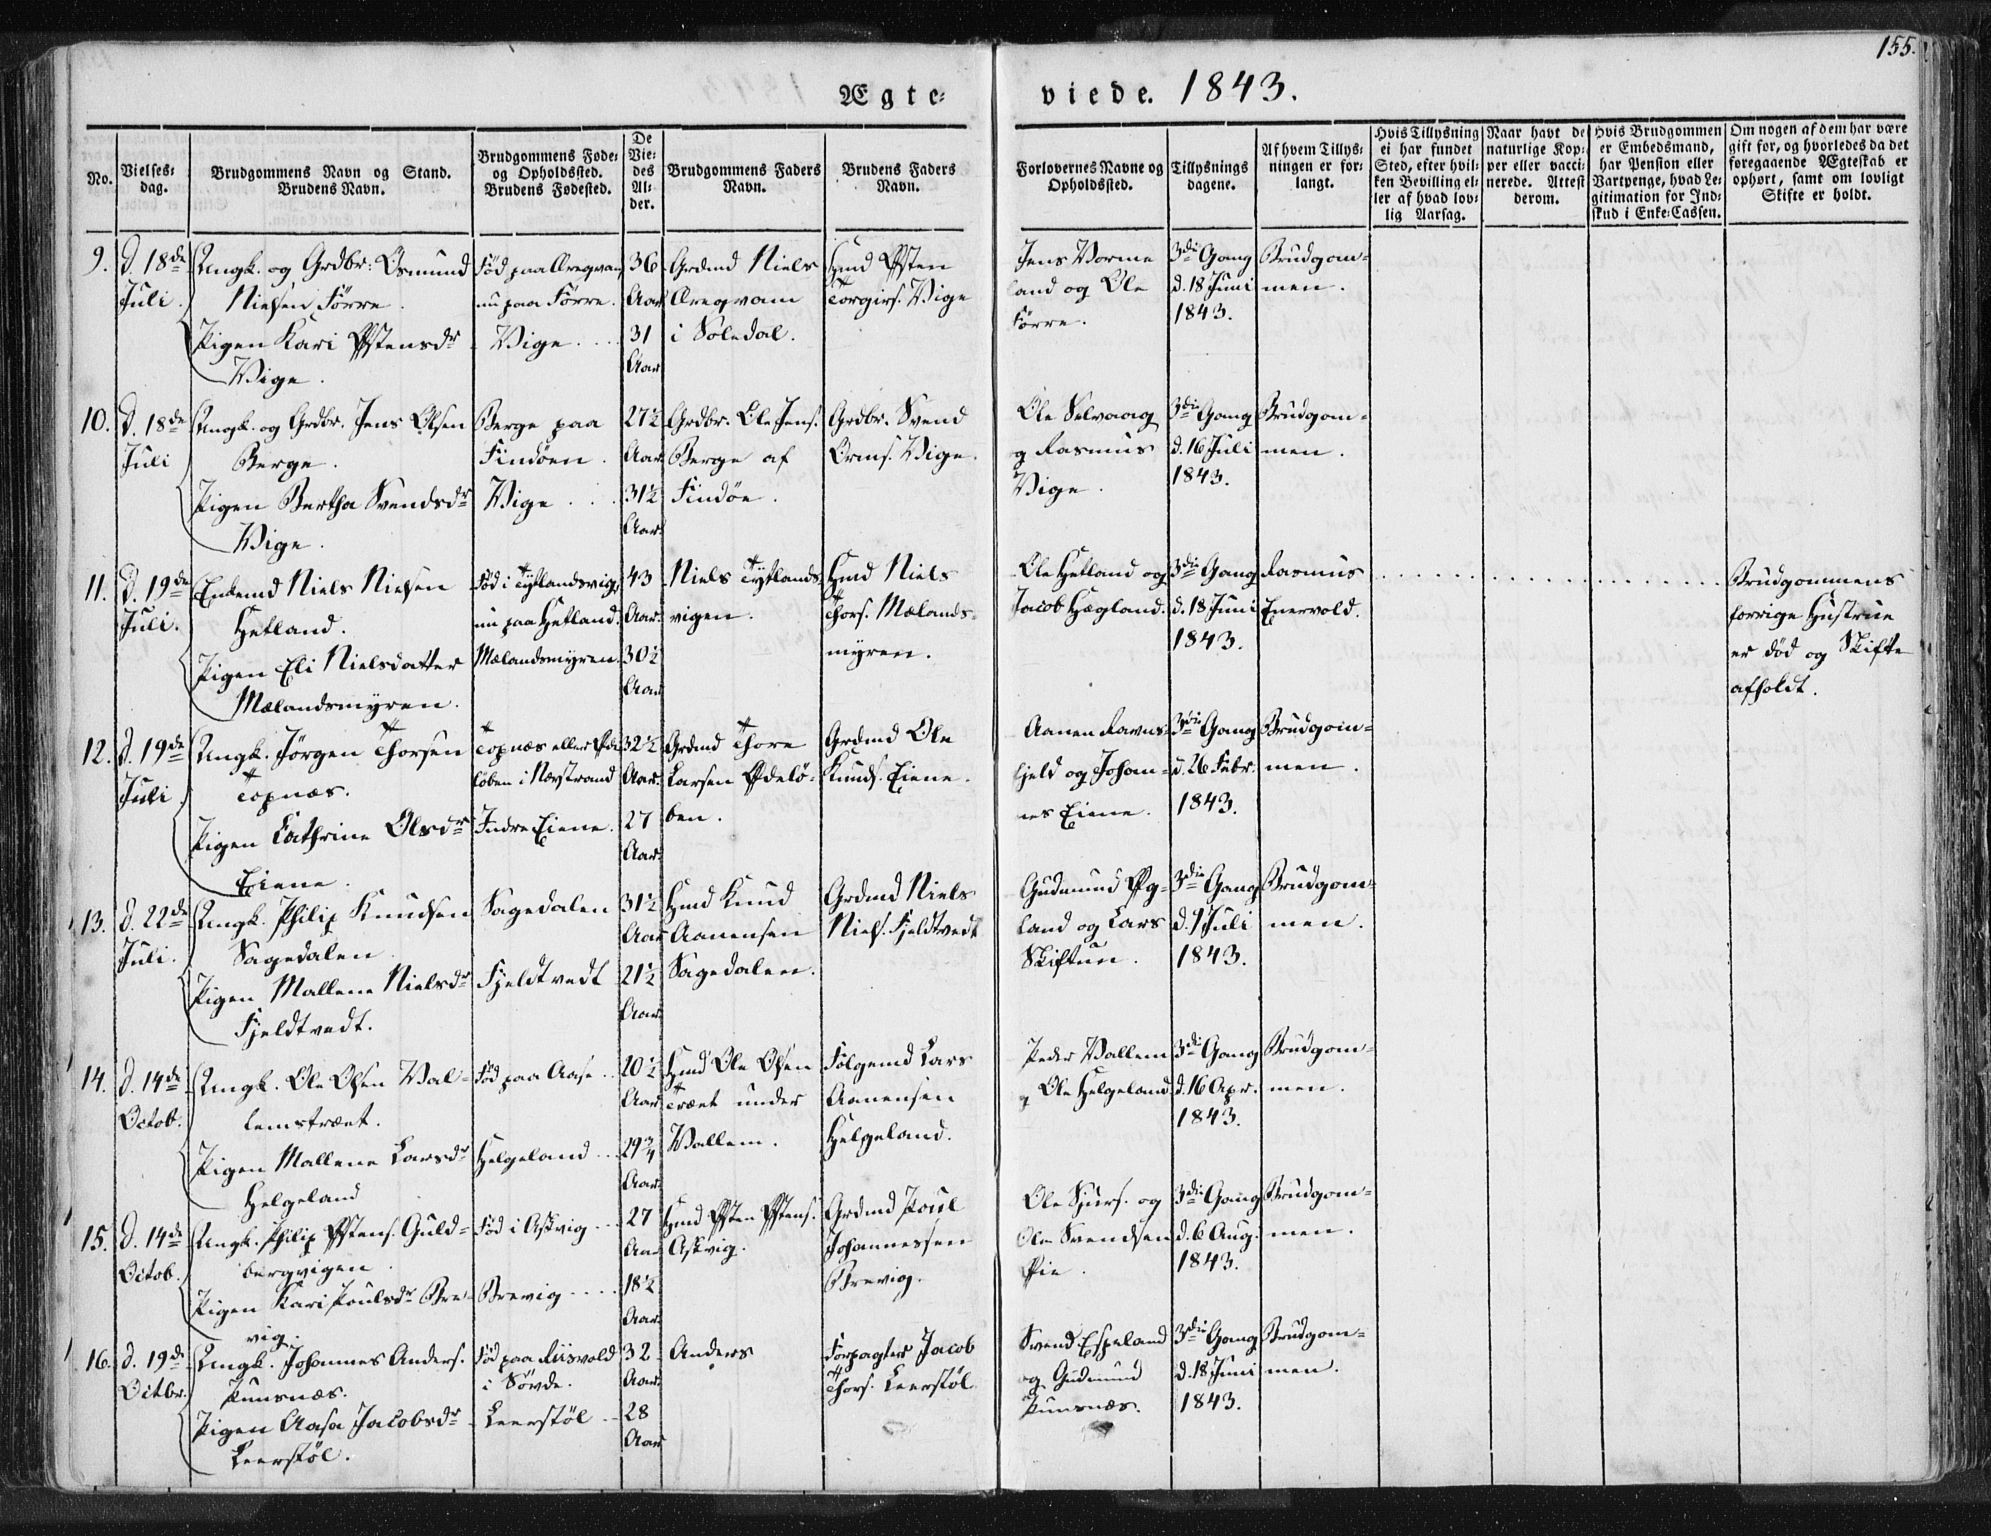 155.
Ægte-
viede. 1843.
No.
Vielses-
dag.
Brudgommens Navn og Stand.
Brudens Navn.
Brudgommens Føde-
og Opholdssted.
Brudens Fødested.
De
Vie-
des
Al-
der.
Brudgommens Faders
Navn.
Brudens Faders
Navn.
Forlovernes Navne og
Opholdssted.
Tillysnings
dagene.
Af hvem Tillys-
ningen er for-
langt.
Hvis Tillysning
ei har fundet
Sted, efter hvil-
ken Bevilling el-
ler af hvad lov-
lig Aarsag.
Naar havt de
naturlige Kop-
per eller vacci-
nerede. Attest
derom.
Hvis Brudgommen
er Embedsmand,
har Pension eller
Vartpenge, hvad Le-
gitimation for Ind-
skud i Enke-Cassen.
Om nogen af dem har være
gift før, og hvorledes da det
foregaaende Ægteskab er
ophørt, samt om lovligt
Skifte er holdt.
9.
d. 18de
Juli.
Ungk. og Grdbr: Osmund
Nielsen Førre.
Pigen Kari Østensdr
Vige.
Fød paa
nu paa Førre.
Vige
36
Aar
31
Aar
Grdmd Niels
i Søledal.
Hmd Østen
Torgirs. Vige
Jens Vorme
land og Ole
Førre.
3die Gang
d. 18 Juni
1843.
Brudgom-
men.
10.
d. 18de
Juli
Ungk. og Grdbr. Jens Olsen
Berge.
Pigen Bertha Svendsdr
Vige.
Berge paa
Findøen.
Vige
27½
Aar
31½
Aar.
Grdbr. Ole Jens.
Berge af
Findøe.
Grdbr. Svend
Orms. Vige.
Ole Selvaag
og Rasmus
Vige.
3die Gang
d. 16 Juli
1843.
Brudgom-
men.
11.
d. 19de
Juli.
Enkemd Niels Nielsen
Hetland.
Pigen Eli Nielsdatter
Mælandsmyren.
Fød i Tytlandsvig,
nu paa Hetland.
Mælandsmyren.
43
Aar.
30½
Aar
Niels Tytlands-
vigen.
Hmd Niels
Thors. Mælands-
myren.
Ole Hetland og
Jacob Hægland.
3die Gang
d. 18 Juni
1843.
Rasmus
Enervold.
Brudgommens
forrige Hustrue
er død og Skifte
afholdt.
12.
d. 19de
Juli
Ungk. Jørgen Thorsen
Topnæs.
Pigen Cathrine Olsdr
Eiene.
Topnæs eller Øde
løben i Nærstrand
Indre Eiene.
32½
Aar.
27
Aar.
Grdmd Thore
Larsen Ødelø-
ben.
Grdmd Ole
Knuds. Eiene.
Aanen Ravns-
fjeld og Johan-
nes Eiene.
3die Gang
d. 26 Febr.
1843.
Brudgom-
men.
13.
d. 22de
Juli.
Ungk. Philip Knudsen
Sagedalen
Pigen Mallene Nielsdr
Fjeldtvedt.
Sagedalen
Fjeldtvedt
31½
Aar
21½
Aar.
Hmd Knud
Aanensen
Sagedalen.
Grdmd Niels
Niels. Fjeldtvedt
Gudmund
land og Lars
Skiftun.
3die Gang
d. 1 Juli
1843.
Brudgom-
men.
14.
d. 14de
Octob.
Ungk. Ole Olsen Val-
lemstræet.
Pigen Mallene Larsdr
Helgeland
Fød paa Aase
20½
Aar
Helgeland
29¾
Aar.
Hmd Ole Olsen
Træet under
Vallem.
Følgemd Lars
Aanensen
Helgeland.
Peder Vallem
og Ole Helgeland
3die Gang
d. 16 Apr.
1843.
Brudgom-
men.
15.
d. 14de
Octob.
Ungk. Philip Østens. Guld-
bergvigen
Pigen Kari Poulsdr Bre-
vig.
Fød i Askvig
Brevig
27
Aar
18½
Aar.
Hmd Østen Østens.
Askvig.
Grdmd Poul
Johannessen
Brevig.
Ole Sjurs. og
Ole Svendsen
3die Gang
d. 6 Aug.
1843.
Brudgom-
men.
16.
d. 19de
Octbr.
Ungk. Johannes Anders.
Punsnæs.
Pigen Aasa Jacobsdr
Leerstøl.
Fød paa Riisvold
i Søvde.
Leerstøl
32
Aar.
28
Aar
Anders
Forpagter Jacob
Thors. Leerstøl
Svend Espeland
og Gudmund
Punsnæs.
3die Gang
d. 18 Juni
1843.
Brudgom-
men.